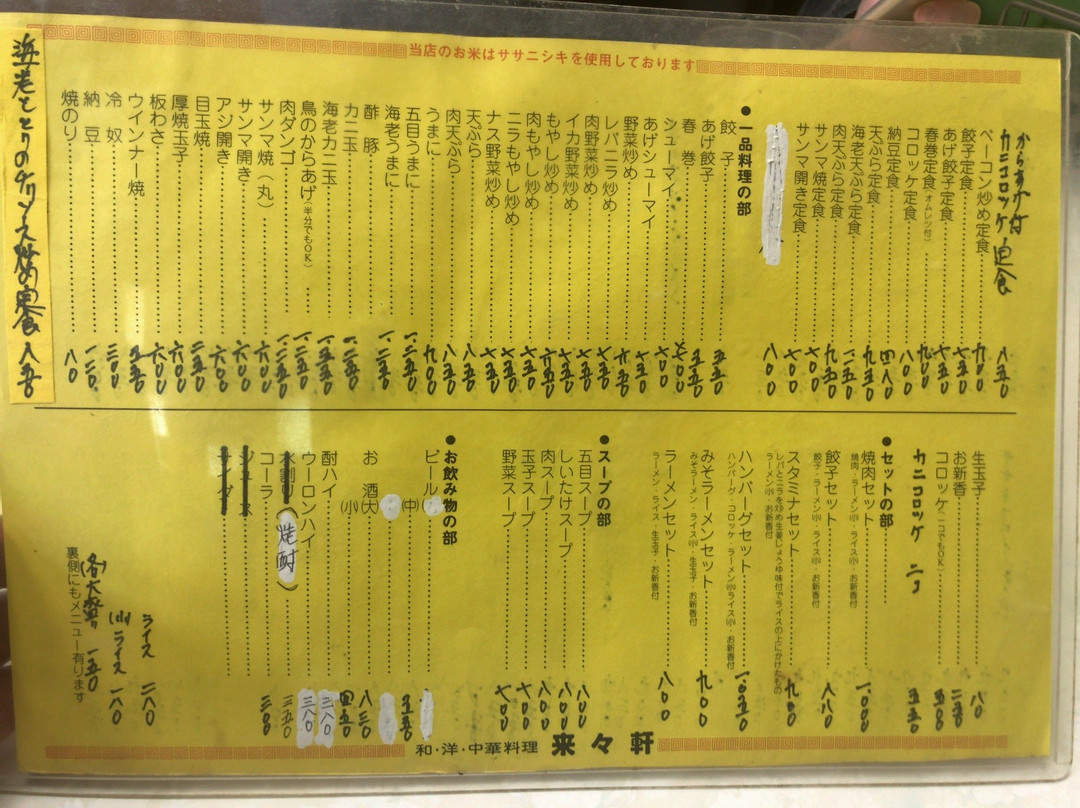 当店のお米はササニシキを使用しております
カニコロッケ定食 八五〇
ベーコン炒め定食 九〇〇
餃子定食 七五〇
あげ餃子定食 七五〇
春巻定食(オムレツ付) 九〇〇
コロッケ定食 八〇〇
納豆定食 四八〇
天ぷら定食 九五〇
海老天ぷら定食 一一五〇
肉天ぷら定食 九五〇
サンマ焼定食 七〇〇
サンマ開き定食 七〇〇
八〇〇
●一品料理の部
餃子 五五〇
あげ餃子 五五〇
春巻 七〇〇
シューマイ
あげシューマイ
野菜炒め 六五〇
レバニラ炒め 七五〇
肉野菜炒め 七五〇
イカ野菜炒め 七五〇
もやし炒め 六五〇
肉もやし炒め 七五〇
ニラもやし炒め 七五〇
ナス野菜炒め 七五〇
天ぷら 八五〇
肉天ぷら 八五〇
うまに 九〇〇
五目うまに 一二五〇
海老うまに 一二五〇
酢豚
カニ玉 一二五〇
海老カニ玉 一三五〇
鳥のからあげ(半分でもOK) 八五〇
肉ダンゴ 一二五〇
サンマ焼(丸) 六〇〇
サンマ開き 六〇〇
アジ開き 六〇〇
目玉焼
厚焼玉子 六〇〇
板わさ 六〇〇
ウインナー焼 五五〇
冷奴 三〇〇
納豆 一二〇
焼のり 八〇
海老ととりのチリソース炒め定食 八五〇
生玉子 八〇
お新香 二五〇
コロッケ(一コでもOK) 五〇〇
カニコロッケ 二コ 五五〇
●セットの部
焼肉セット 一、〇〇〇
焼肉・ラーメン(小)・ライス(小)・お新香付
餃子セット 八八〇
餃子・ラーメン(小)・ライス(小)・お新香付
スタミナセット 九〇〇
レバとニラを炒め生姜しょうゆ味付でライスの上にかけたもの
ラーメン(小)・お新香付
ハンバーグセット 一、〇五〇
ハンバーグ・コロッケ・ラーメン(小)ライス(小)・お新香付
みそラーメンセット 九〇〇
みそラーメン・ライス(小)・生玉子・お新香付
ラーメンセット 八〇〇
ラーメン・ライス・生玉子・お新香付
●スープの部
五目スープ 八〇〇
しいたけスープ 八〇〇
肉スープ 八〇〇
玉子スープ 七〇〇
野菜スープ 七〇〇
●お飲み物の部
ビール
(中) 五五〇
お酒(大) 八三〇
(小) 四五〇
酎ハイ 三八〇
ウーロンハイ 三八〇
水割り(焼酎) 三五〇
コーラ 三〇〇
ジュース
サイダー
ライス 二八〇
(小)ライス 一八〇
(各)大盛り 一五〇
裏側にもメニュー有ります
和・洋・中華料理 来々軒